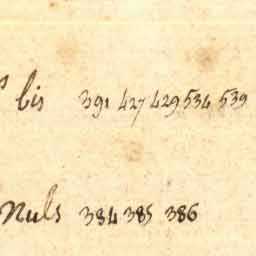 bis 391 427 429 534 539
Nuls 384 385 386